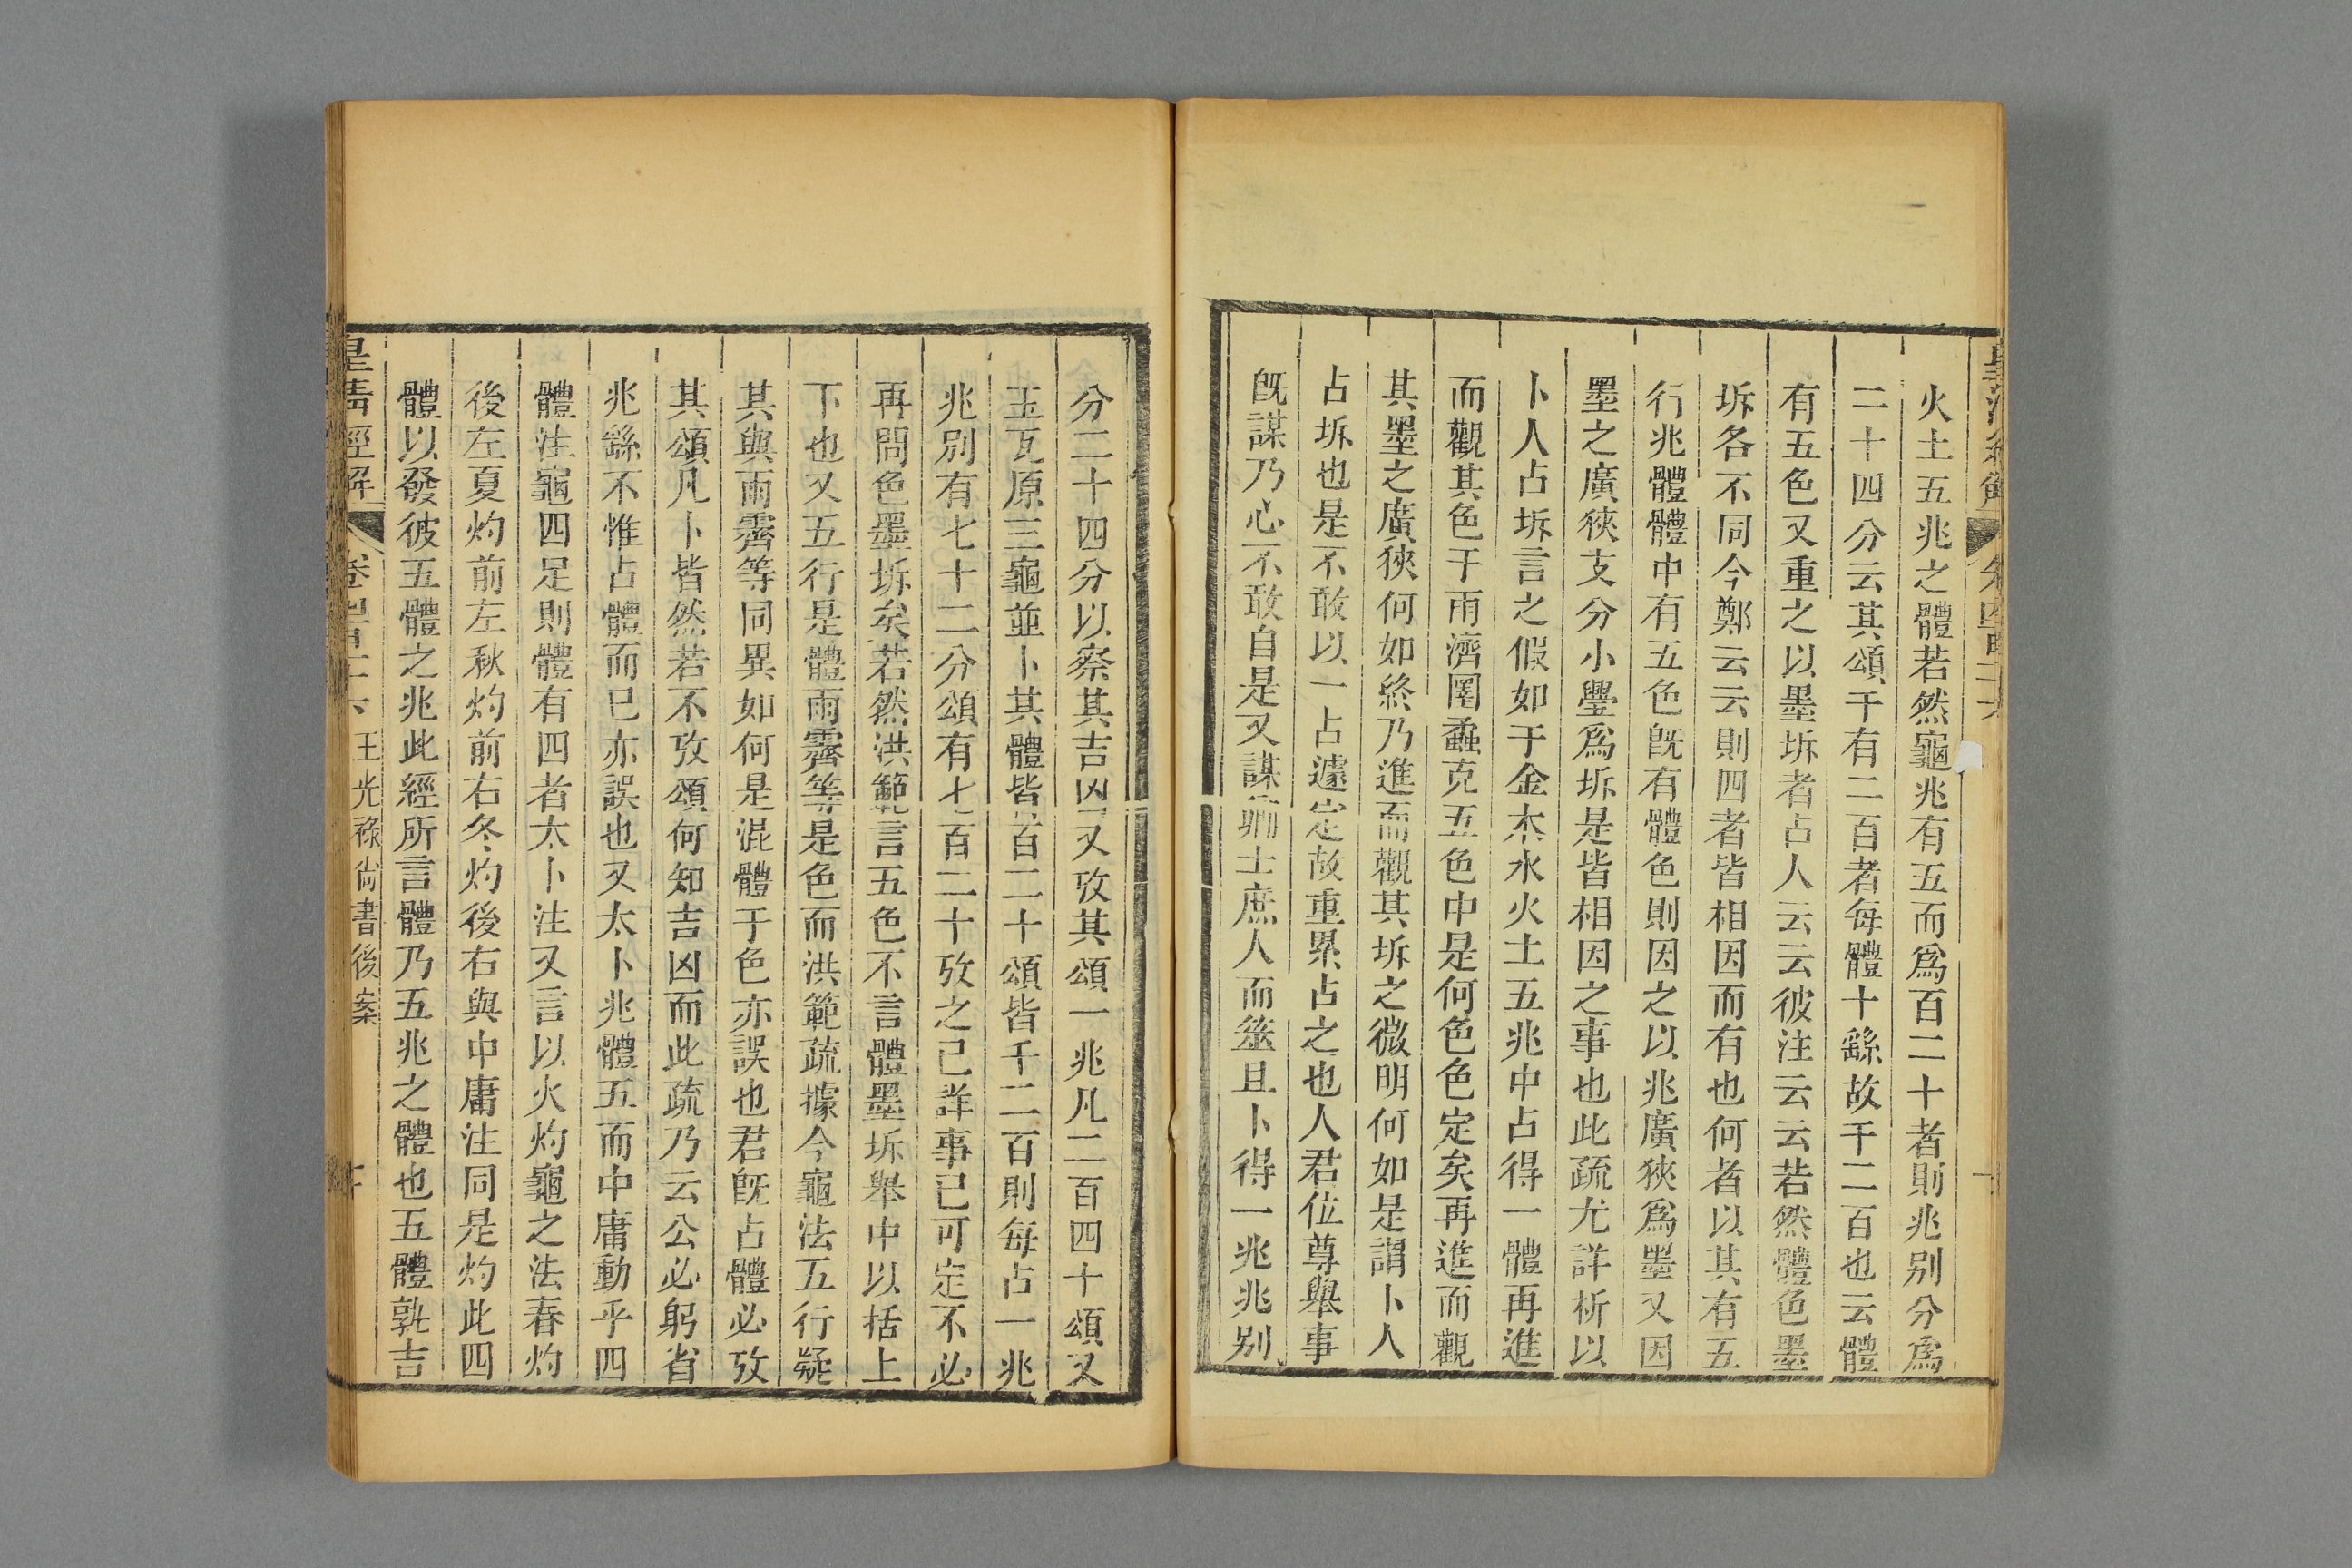 火土五兆之體若然龜兆有五而爲百二十者則兆別分爲
二十四分云其頌千有二百者每體十繇故千二百也云體
有五色又重之以墨坼者占人云云彼注云云若然體色墨
坼各不同今鄭云云則四者皆相因而有也何者以其有五
行兆體體中有五色旣有體色則因之以兆廣狹爲墨又因
墨之廣狹支分小璺爲坼是皆相因之事也此疏尤詳析以
卜人占坼言之假如于金木水火土五兆中占得一體再進
而觀其色于雨濟圛蟊克五色中是何色色定矣再進而觀
其墨之廣狹何如終乃進而觀其坼之微明何如是謂卜人
占坼也是不敢以一占遽定故重累占之也人君位尊舉事
旣謀乃心不敢自是又謀卿士庶人而筮且卜得一兆兆別
分二十四分以察其吉凶又攷其頌一兆凡二百四十頌又
玉瓦原三龜並卜其體皆百二十頌皆千二百則每占一兆
兆別有七十二分頌有七百二十攷之已詳事已可定不必
再問色墨坼矣若然洪範言五色不言體墨坼舉中以括上
下也又五行是體雨霽等是色而洪範疏據今龜法五行疑
其與雨霽等同異如何是混體于色亦誤也君旣占體必攷
其頌凡卜皆然若不攷頌何知吉凶而此疏乃云公必躬省
兆繇不惟占體而已亦誤也又太卜兆體五而中庸動乎四
體注龜四足則體有四者太卜注又言以火灼龜之法春灼
後左夏灼前左秋灼前右冬灼後右與中庸注同是灼此四
體以發彼五體之兆此經所言體乃五兆之體也五體孰吉
皇清經解 卷四百二十六 王光祿尙書後案